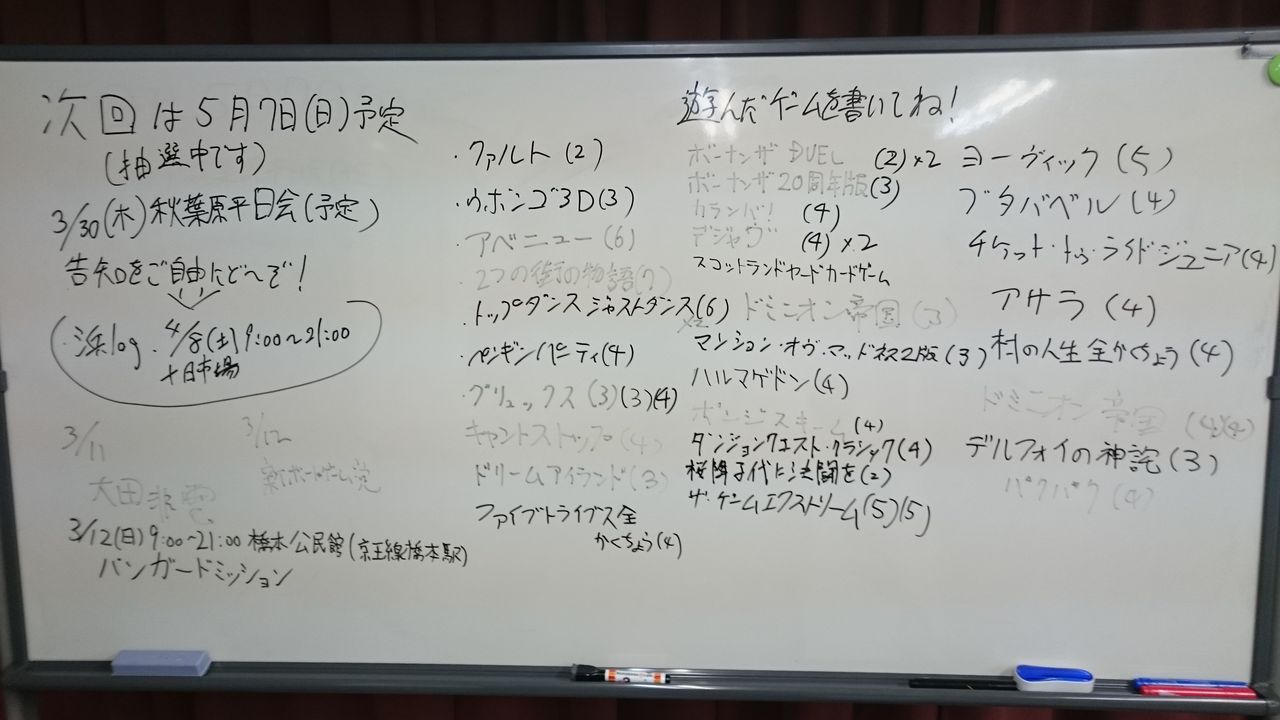 次回は5月7日(日)予定
(抽選中です)
3/30(木)秋葉原平日会(予定)
告知をご自由にど〜ぞ!
・浜log. 4/8(土)9:00〜21:00
十日市場
3/11
3/12
大田
新ボードゲーム党
3/12(日)9:00〜21:00 橋本公民館(京王線橋本駅)
バンガードミッション
・ファルト(2)
・ウボンゴ3D(3)
・アベニュー(6)
・2つの街の物語(7)
・トップダンスジャストダンス(6)
×2
・ペンギンパーティ(4)
・グリュックス(3)(3)(4)
・キャントストップ(4)
・ドリームアイランド(3)
ファイブトライブス全
かくちょう(4)
遊んだゲームを書いてね!
ボーナンザ DUEL (2)×2
ボーナンザ20周年版(3)
カランバ! (4)
デジャヴ (4)×2
スコットランドヤードカードゲーム
ドミニオン帝国(3)
マンション・オヴ・マッドネス2版(3)
ハルマゲドン(4)
ポンジスキーム(4)
ダンジョンクエスト・クラシック(4)
桜降る代に決闘を(2)
ザ・ゲームエクストリーム(5)(5)
ヨーヴィック(5)
ブタバベル(4)
チケット・トゥ・ライドジュニア(4)
アサラ(4)
村の人生全かくちょう(4)
ドミニオン帝国(4)(4)
デルフォイの神託(3)
パクパク(4)